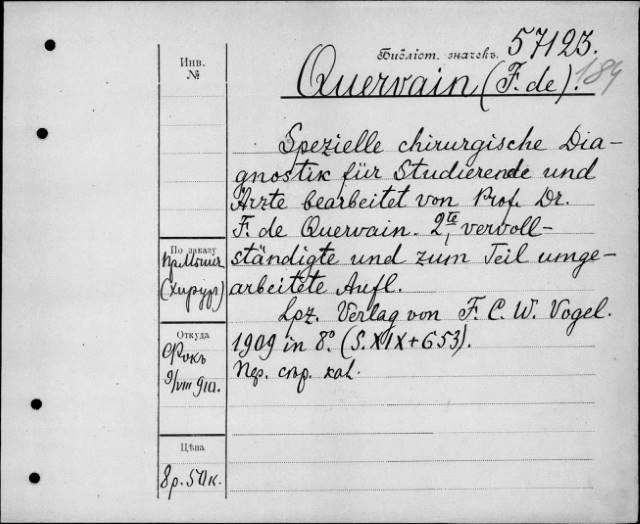 Библіот. значекъ 57123.
184
Quervain (F. de).
Инв.
№
Spezielle chirurgische Dia-
gnostik für Studierende und
Ärzte bearbeitet von Prof. Dr.
F. de Quervain. 2te vervoll-
ständigte und zum Teil umge-
arbeitete Aufl.
Lpz. Verlag von F. C. W. Vogel.
1909 in 8°. (S. XIX+653).
Пер. съ кал.
По заказу
(Хирург)
Откуда
Фокъ
9/VIII 910.
Цѣна
8р. 50к.